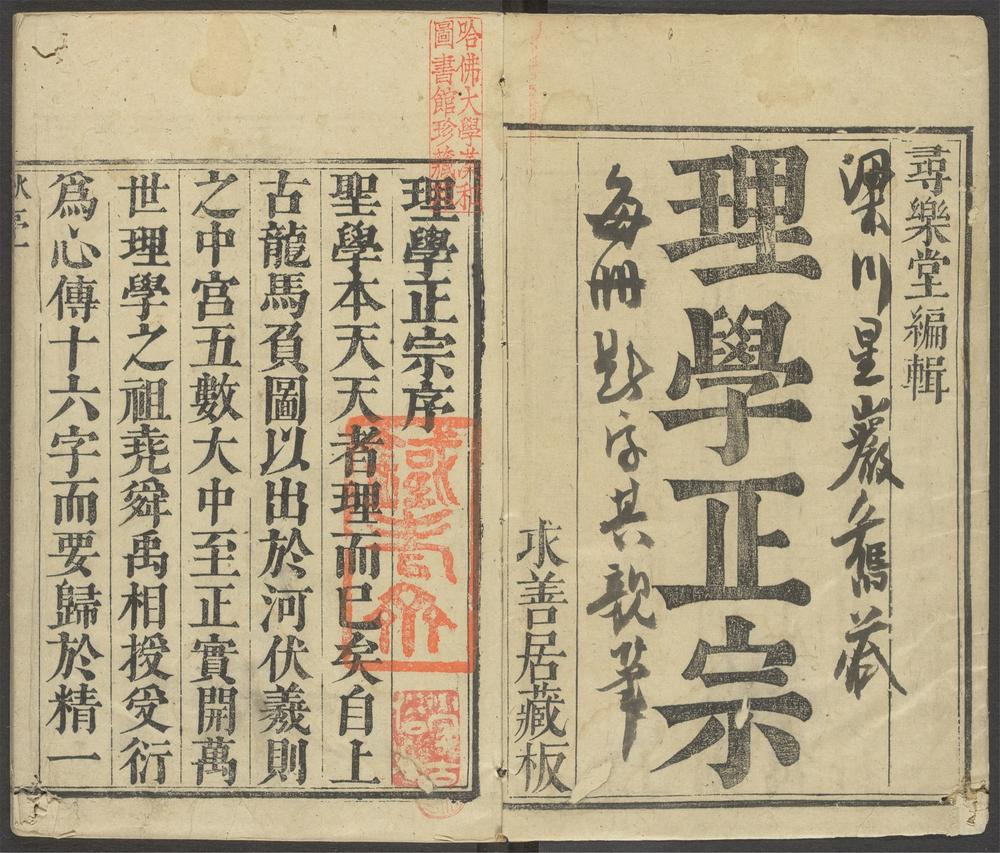 尋樂堂編輯
梁川星巖舊藏
理學正宗
每冊題字其親筆
求善居藏板
哈佛大學
圖書館珍藏
理學正宗序
聖學本天天者理而已矣自上
古龍馬負圖以出於河伏羲則
之中宮五數大中至正實開萬
世理學之祖堯舜禹相授受衍
爲心傳十六字而要歸於精一